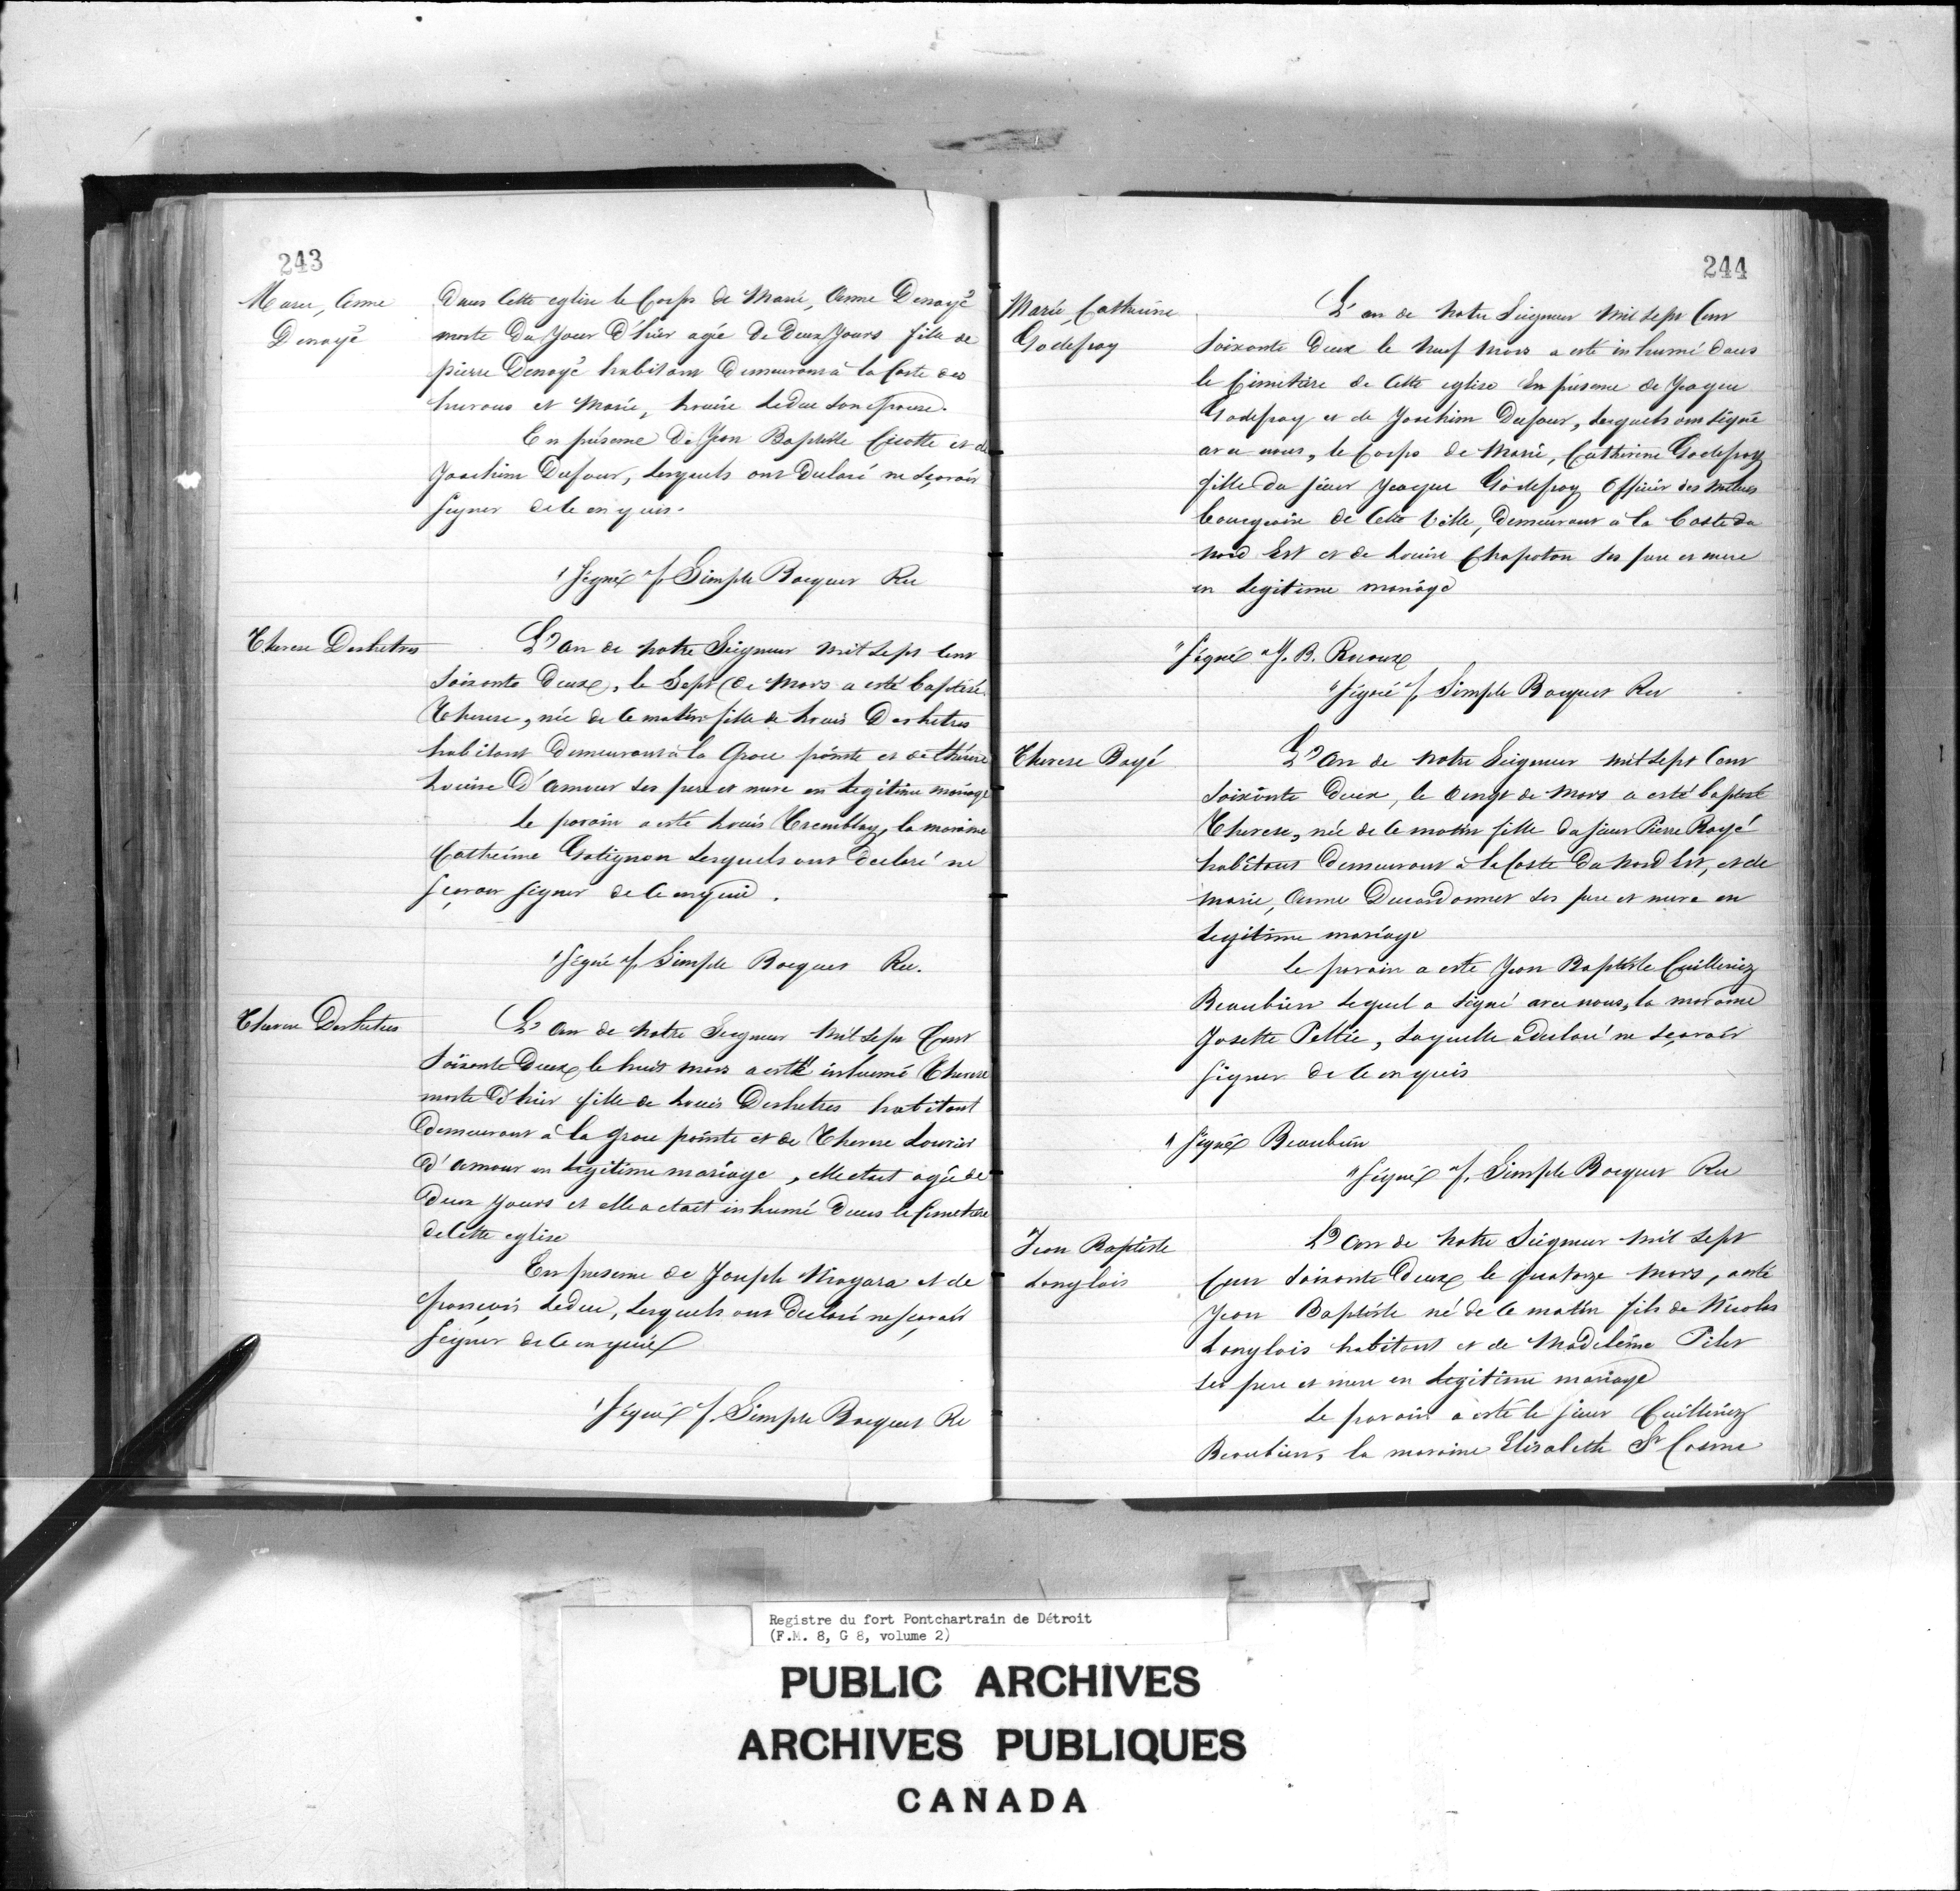 243
Marie, Anne
Denoyé
Dans cette eglise le Corps de Marie, Anne Denoyé
morte Du Jour D'hier agée De Deux Jours fille de
pierre Denoyé habitant Demeurant à la Coste des
hurons et Marie, Louise Leduc son epouse.
En présence De Jean Baptiste Cicotte et de
Joachim Dufour, lesquels ont Déclaré ne sçavoir
signer de ce enquis.
"Signé" f. Simple Bocquet Rec
Therese Deshetres
L'an de notre Seigneur mil sept cent
soixante Deux, le Sept de Mars a esté baptisé
Therese, née de ce matin fille de Louis Deshetres
habitant Demeurant à la Grose pointe et de thérèse
Louise D'amour ses pere et mere en legitime mariage
Le parain a esté Louis Tremblay, la maraine
Catherine Gatignon lesquels ont declaré ne
sçavoir signer de ce enquis.
"Signé f. Simple Bocquet Rec.
Therese Deshetres
L'an de notre Seigneur mil sept Cent
soixante Deux le huit mars a esté inhumé Therese
morte D'hier fille de Louis Deshetres habitant
Demeurant à la Grose pointe et de Therese Louise
D'amour en legitime mariage, elle etait agée de
Deux Jours et elle a etait inhumé Dans le Cimetiere
de Cette eglise
En presence de Joseph Niagara et de
françois Leduc, lesquels ont Declaré ne sçavoir
Signer de ce enquis
"Signé f. Simple Bocquet Re
244
Marie, Catherine
Godefroy
L'an de notre Seigneur mil sept Cent
soixante Deux le neuf Mars a esté inhumé dans
le Cimetiere de Cette eglise En présence de Jacque
Godefroy et de Joachim Dufour, lesquels ont signé
avec nous, le Corps de Marie, Catherine Godefroy
fille du sieur Jacque Godefroy Officier des milices
bourgeois de Cette Ville, Demeurant à la Coste du
Nord Est et de Louise Chapoton ses pere et mere
en legitime mariage
"Signé" J. B.
"Signé f. Simple Bocquet Rec
Therese Boyé
L'an de notre Seigneur mil sept Cent
soixante Deux, le Vingt de Mars a esté baptisé
Therese, née de ce matin fille du sieur Pierre Boyé
habitant Demeurant à la Coste Du Nord Est, et de
Marie, Anne Ducordonnet ses pere et mere en
legitime mariage
Le parain a esté Jean Baptiste Cuilleriez
Beaubien lequel a signé avec nous, la maraine
Josette Peltie, laquelle a declaré ne sçavoir
signer de ce enquis
"Signé Beaubien
"Signé f. Simple Bocquet Rec
Jean Baptiste
Langlois
L'an de notre Seigneur mil sept
Cent soixante Deux le quatorze Mars, a esté
Jean Baptiste né de ce matin fils de Nicolas
Langlois habitant et de Madeleine Pilet
ses pere et mere en legitime mariage
Le parain a esté le sieur Cuilleriez
Beaubien, la maraine Elisabeth St Cosme
Registre du fort Pontchartrain de Détroit
(F.M. 8, G 8, volume 2)
PUBLIC ARCHIVES
ARCHIVES PUBLIQUES
CANADA